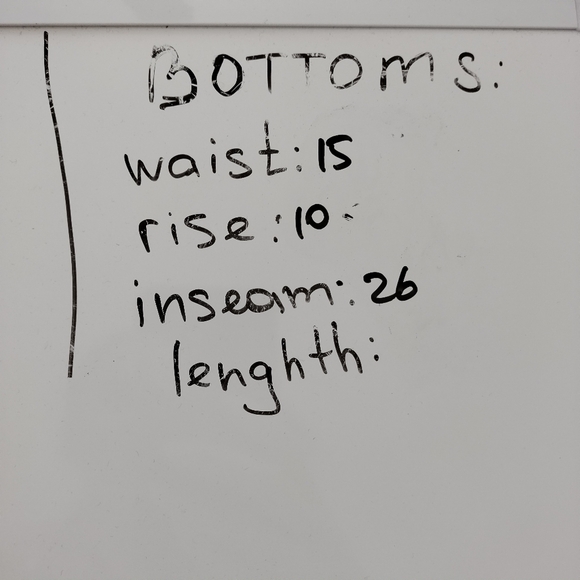 BOTTOMS:
waist: 15
rise: 10
inseam: 26
lenghth: